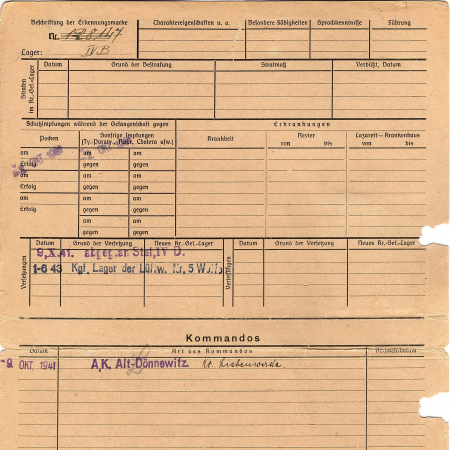 Beschriftung der Erkennungsmarke
Nr. 128147
Lager: IV B
Charaktereigenschaften u. a.
Besondere Fähigkeiten
Sprachkenntnisse
Führung
Strafen im Kr.-Gef.-Lager
Datum
Grund der Bestrafung
Strafmaß
Verbüßt, Datum
Schutzimpfungen während der Gefangenschaft gegen
Erkrankungen
Pocken
Sonstige Impfungen
(Ty.-Paraty., Ruhr, Cholera usw.)
Krankheit
Revier
von bis
Lazarett - Krankenhaus
von bis
am
am
am
Erfolg
gegen
gegen
am
am
am
Erfolg
gegen
gegen
am
am
am
Erfolg
gegen
gegen
am
am
gegen
gegen
am
am
OKT. 1941
OKT. 1941
Versetzungen
Datum
Grund der Versetzung
Neues Kr.-Gef.-Lager
Versetzungen
Datum
Grund der Versetzung
Neues Kr.-Gef.-Lager
9.X.41. abgeg. an Stal. IV D.
1-6 43 Kgf. Lager der Luftw. Nr. 5
Kommandos
Datum
Art des Kommandos
Rückkehrdatum
-9. OKT. 1941
A.K. Alt-Dönnewitz. Kr. Liebenwerda.